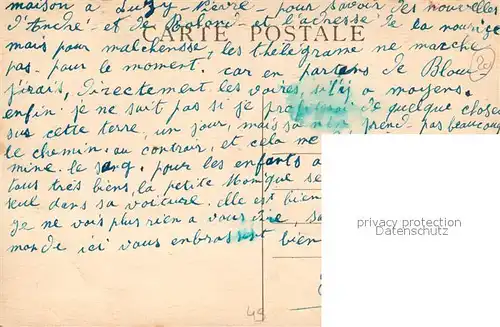 maison à Luzy-Nièvre - pour savoir des nouvelles
d'André et de Roland et l'adresse de la
CARTE POSTALE
mais pour malchensse, les thélégrame ne marche
pas. pour le moment. car en partans de
j'irais, directement les voires, s'il y a moyens.
enfin. je ne suit pas si je de quelque choses
sus cette terre, un jour, mais sa n'en prend pas beaucoup
le chemin. au contrair, et cela me
mine. le sang. pour les enfants
tous très biens, la petite Monique se
seul dans sa voiture. elle est bien
je ne vois plus rien a vous dire,
monde ici vous enbrassent bien
privacy protection
Datenschutz
49